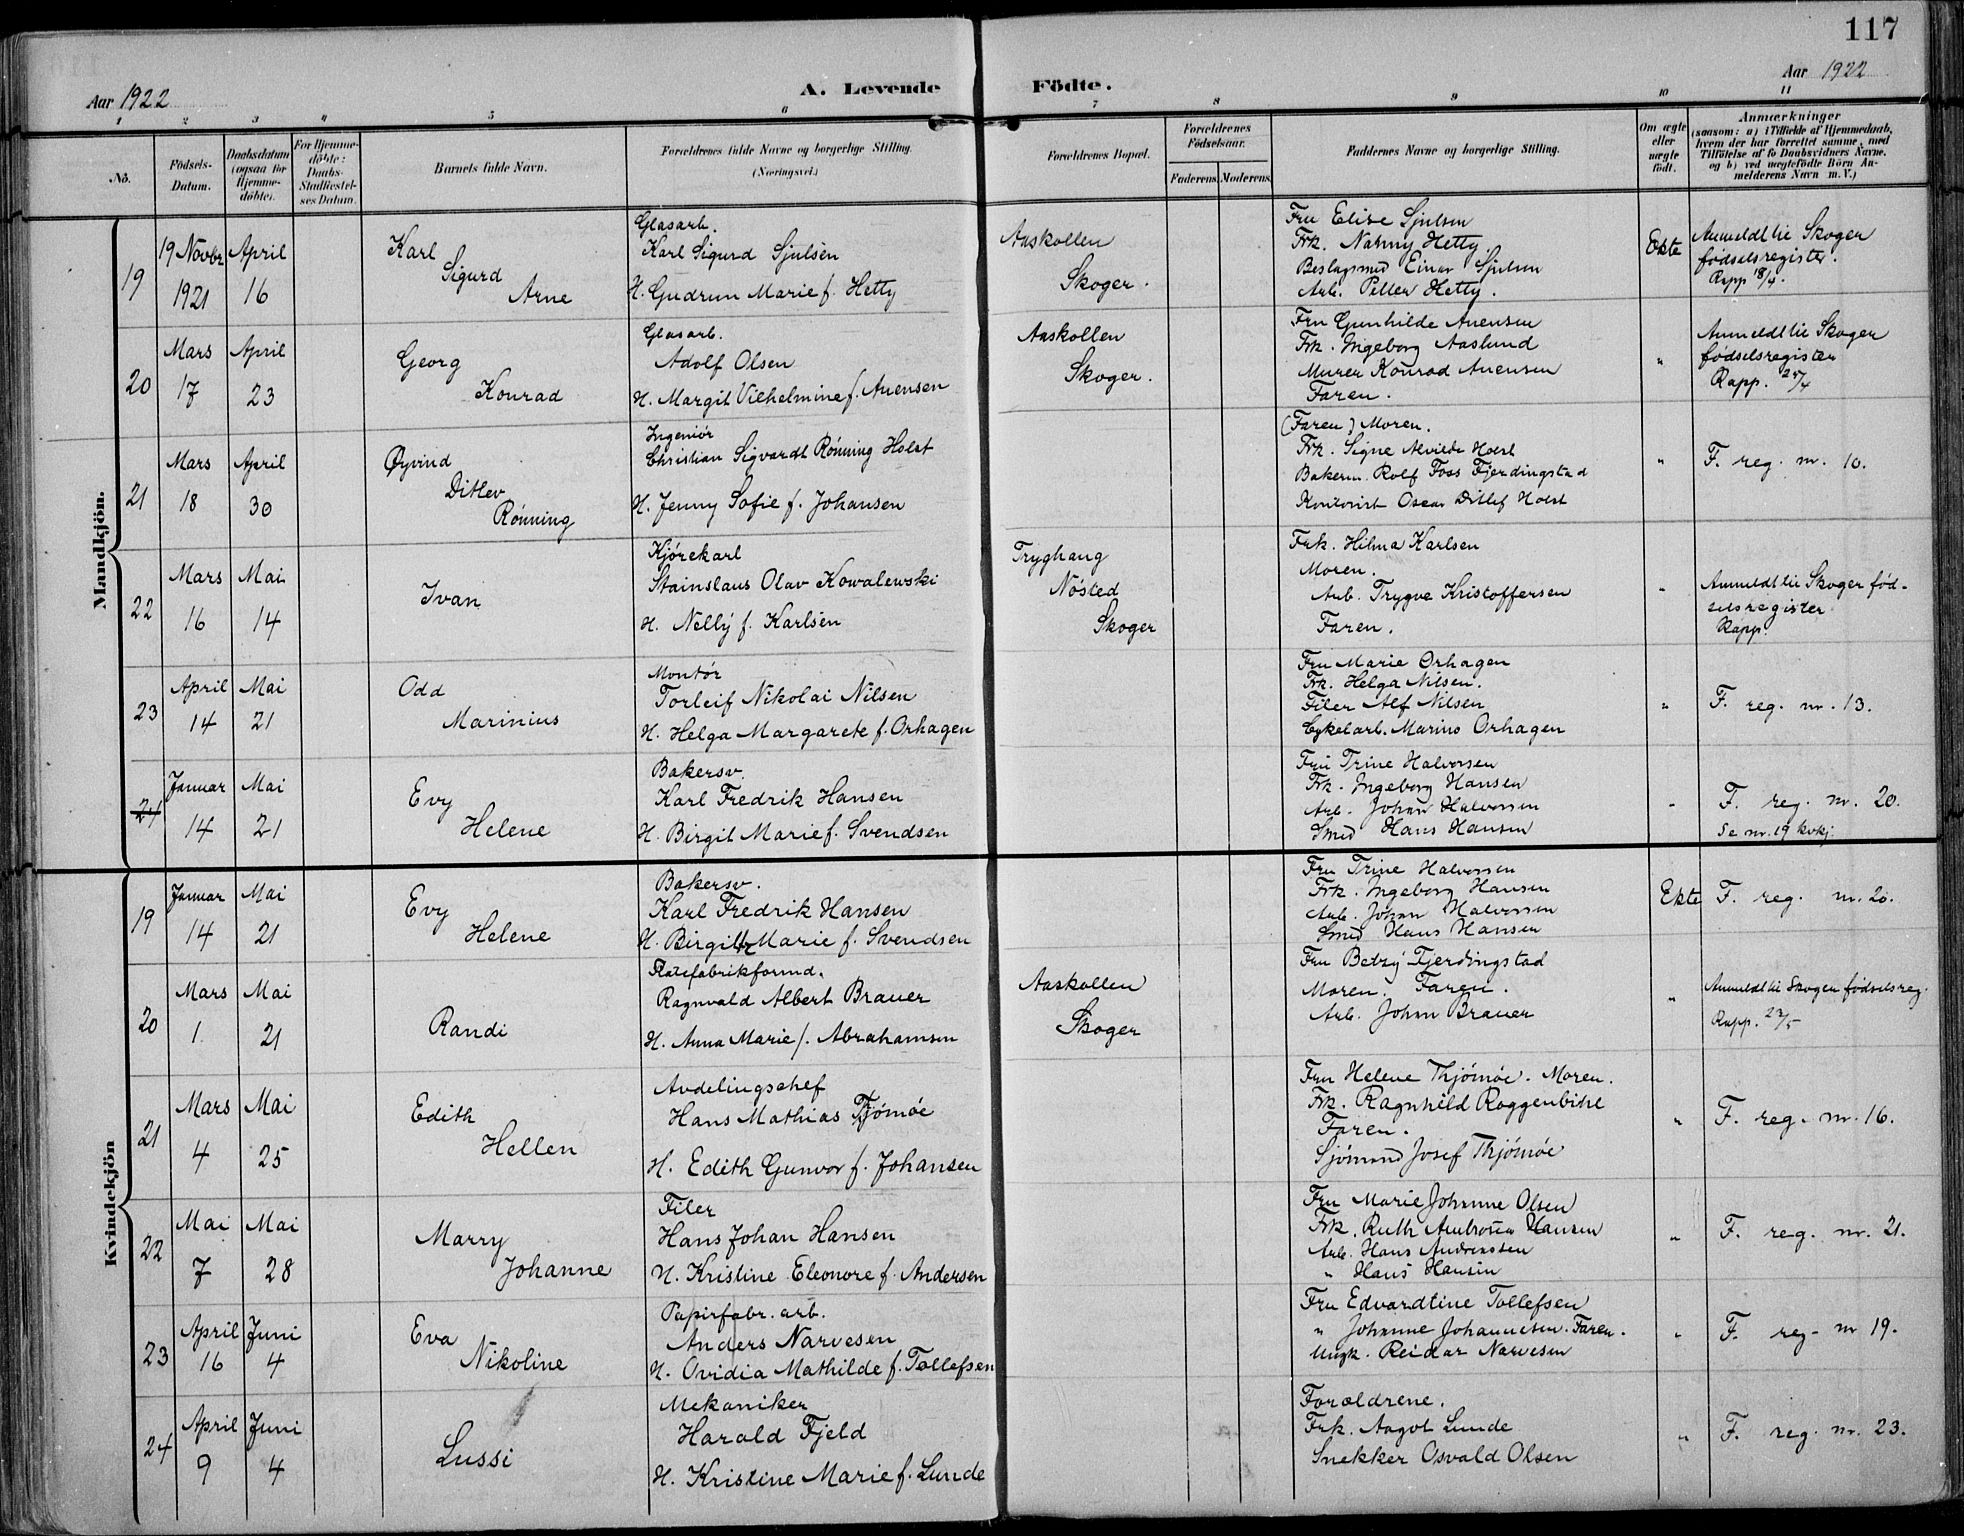 117
Aar 1922
A. Levende Födte.
Aar 1922
1 2 3 4 5 6 7 8 9 10 11
No.
Födsels-Datum.
Daabsdatum (ogsaa for Hjemme-döbte).
For Hjemme-döbte: Daabs-Stadfæstel-ses Datum.
Barnets fulde Navn.
Forældrenes fulde Navne og borgerlige Stilling.
(Næringsvei.)
Forældrenes Bopæl.
Forældrenes Födselsaar.
Faderens. Moderens.
Faddernes Navne og borgerlige Stilling.
Om ægte eller uægte født.
Anmærkninger
(saasom: a) i Tilfælde af Hjemmedaab,
hvem der har forrettet samme, med
Tilföielse af to Daabsvidners Navne,
og b) ved uægtefödte Börn An-
melderens Navn m. V.)
Mandkjön.
19
19 Novbr 1921
April 16
Karl
Sigurd
Arne
Glasarb.
Karl Sigurd Sjulsen
H. Gudrun Marie f. Hetty
Aaskollen
Skoger.
Fru Elise Sjulsen
Frk. Nanny Hetty.
Beslagsmed Einar Sjulsen
Arb. Petter Hetty.
Ekte
Anmeldt til Skoger
fødselsregister.
Rapp 18/4.
20
Mars 17
April 23
Georg
Konrad
Glasarb.
Adolf Olsen
H. Margit Vilhelmine f. Auensen
Aaskollen
Skoger.
Fru Gunhilde Auensen
Frk. Ingeborg Aaslund
Murer Konrad Auensen
Faren.
"
Anmeldt til Skoger
fødselsregister
Rapp. 25/4
21
Mars 18
April 30
Øyvind
Ditlev
Rönning
Ingeniör
Christian Sigvardt Rönning Holst
H. Jenny Sofie f. Johansen
(Faren) Moren.
Frk. Signe Alvilde Holst
Bakerm. Rolf Foss Fjerdingstad
Kontorist Oscar Ditlef Holst
"
F. reg. nr. 10.
22
Mars 16
Mai 14
Ivan
Kjörekarl
Stainslaus Olav Kowalewski
H. Nelly f. Karlsen
Tryghaug
Nösted
Skoger
Frk. Hilma Karlsen
Moren.
Arb. Trygve Kristoffersen
Faren.
"
Anmeldt til Skoger fød-
selsregister
Rapp.
23
April 14
Mai 21
Odd
Marinius
Montör
Torleif Nikolai Nilsen
H. Helga Margarete f. Orhagen
Fru Marie Orhagen
Frk. Helga Nilsen.
Filer Alf Nilsen
Cykelarb. Marius Orhagen
"
F. reg. nr. 13.
24
Januar 14
Mai 21
Evy
Helene
Bakersv.
Karl Fredrik Hansen
H. Birgit Marie f. Svendsen
Fru Trine Halvorsen
Frk. Ingeborg Hansen
Arb. Johan Halvorsen
Smed Hans Hansen
"
F. reg. nr. 20.
Se nr. 19 kvkj.
Kvindekjön
19
Januar 14
Mai 21
Evy
Helene
Bakersv.
Karl Fredrik Hansen
H. Birgit Marie f. Svendsen
Fru Trine Halvorsen
Frk. Ingeborg Hansen
Arb. Johan Halvorsen
Smed Hans Hansen
Ekte
F. reg. nr. 20.
20
Mars 1
Mai 21
Randi
Ragnvald Albert Brauer
H. Anna Marie f. Abrahamsen
Aaskollen
Skoger
Fru Betzy Fjerdingstad
Moren. Faren.
Arb. Johan Brauer
"
Anmeldt til Skoger fødselsreg.
Rapp. 23/5
21
Mars 4
Mai 25
Edith
Hellen
Avdelingschef
Hans Mathias Tjömöe
H. Edith Gunvor f. Johansen
Fru Helene Thjömöe. Moren.
Frk. Ragnhild Roggenbihl
Faren.
Sjömand Josef Thjömöe
"
F. reg. nr. 16.
22
Mai 7
Mai 28
Marry
Johanne
Filer
Hans Johan Hansen
H. Kristine Eleonore f. Andersen
Fru Marie Johanne Olsen
Frk. Ruth Hansen
Arb. Hans Andreassen
" Hans Hansen
"
F. reg. nr. 21.
23
April 16
Juni 4
Eva
Nikoline
Papirfabr. arb.
Anders Narvesen
H. Ovidia Mathilde f. Tollefsen
Fru Edvardtine Tollefsen
" Johanne Johannesen. Faren.
Ungk. Reidar Narvesen
"
F. reg. nr 19.
24
April 9
Juni 4
Lussi
Mekaniker
Harald Fjeld
H. Kristine Marie f. Lunde
Forældrene.
Frk. Aagot Lunde
Snekker Osvald Olsen
"
F. reg. nr. 23.